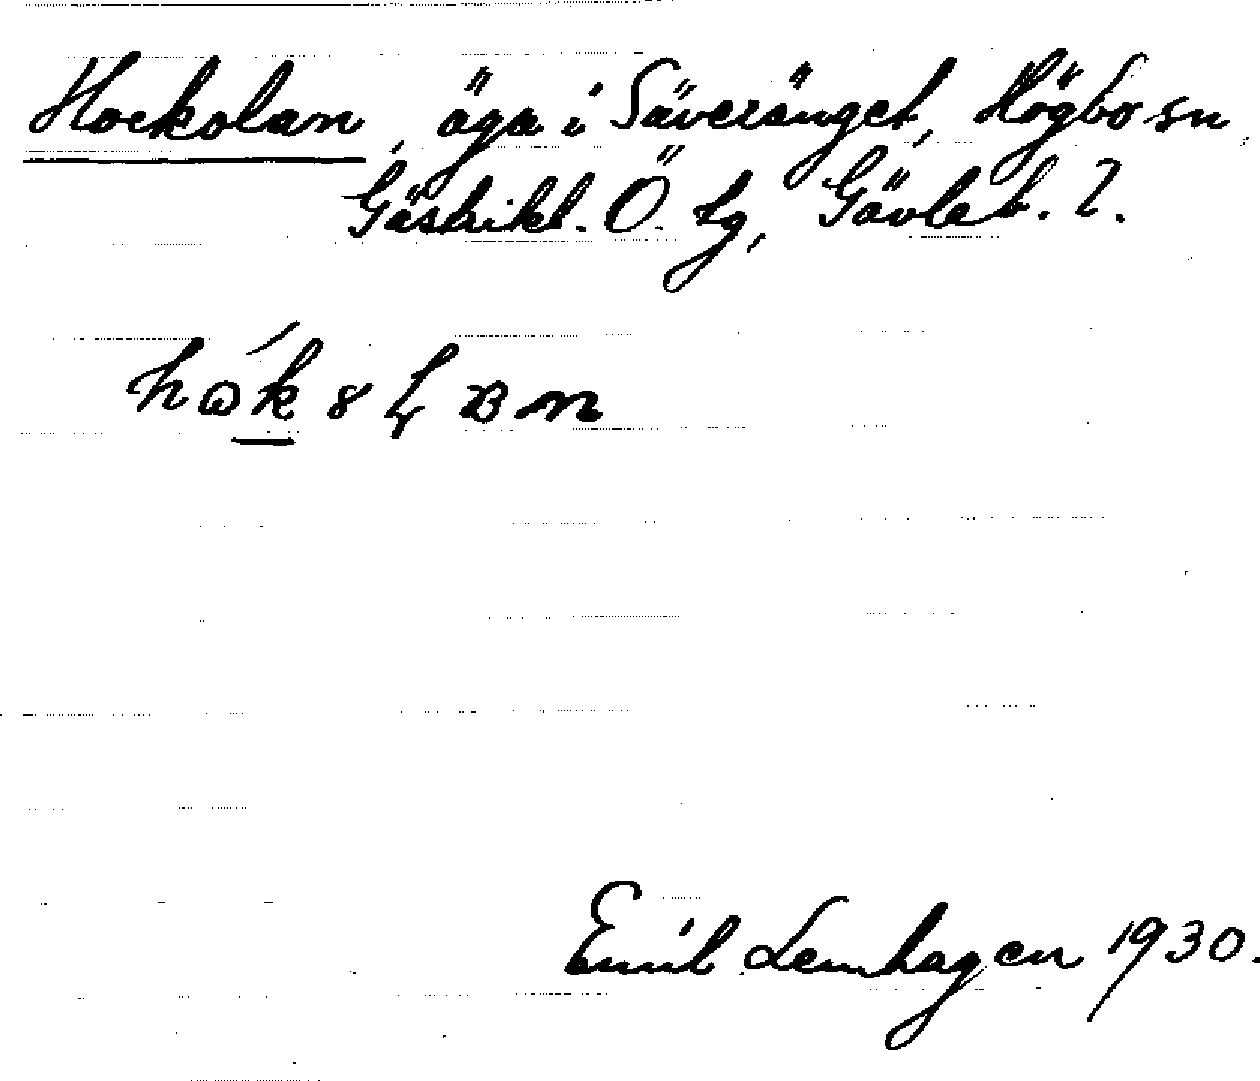 Hockolan, äga i Säveränget, Högbo sn,
Gästrikl. Ö. tg, Gävleb. l.
Emil Lemhagen 1930.